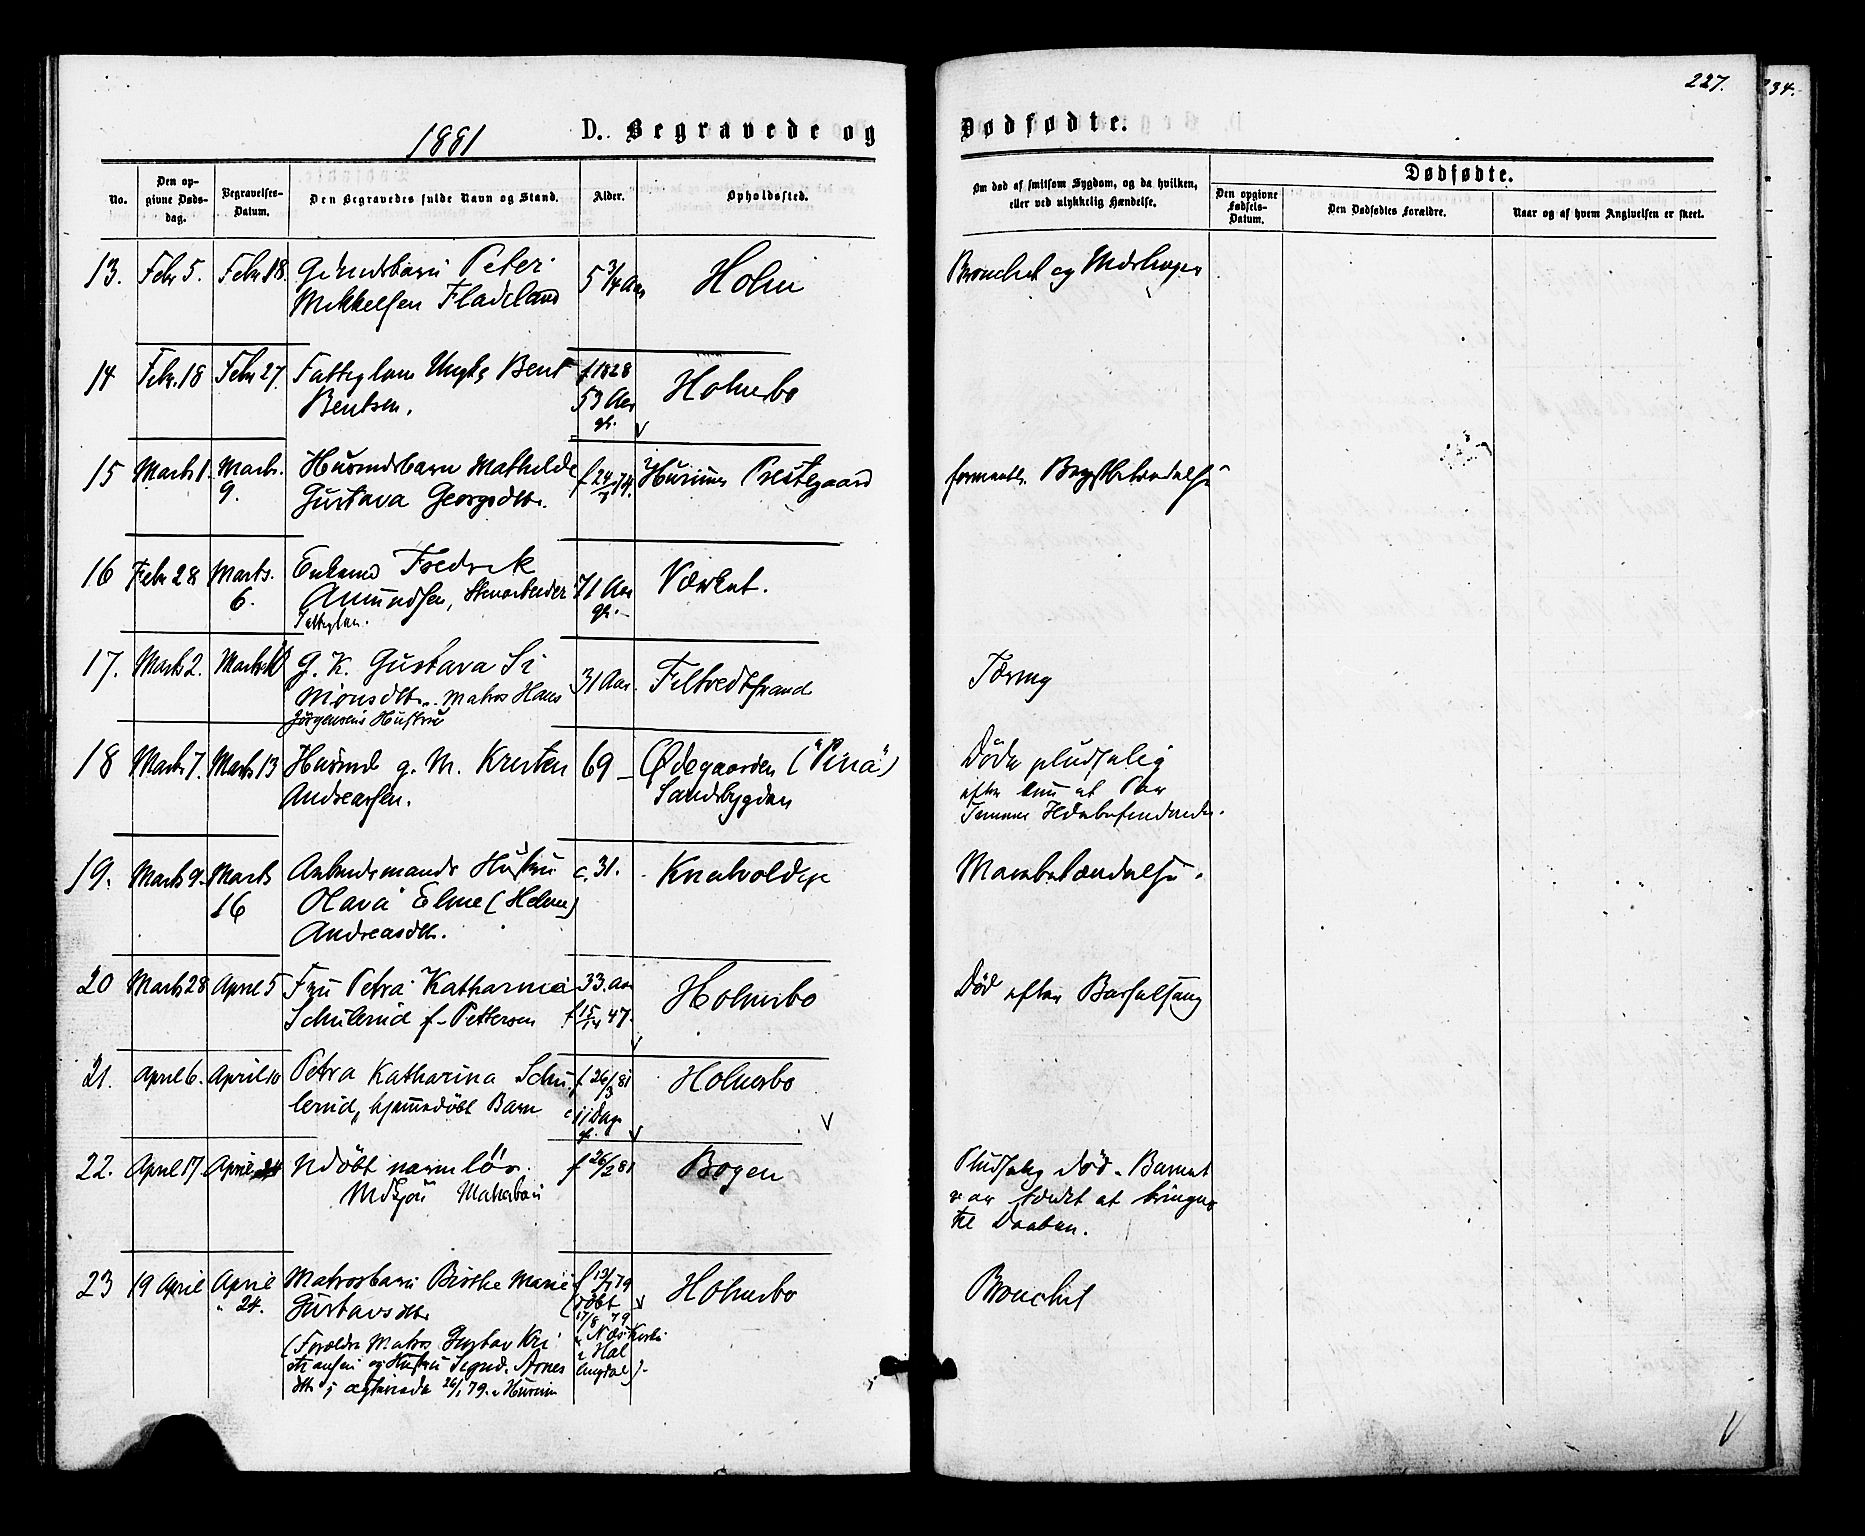 227.
234.
1881 D. Begravede og Dødfødte.
No.
Den op-
givne Døds-
dag.
Begravelses-
Datum.
Den Begravedes fulde Navn og Stand.
Alder.
Opholdssted.
Om død af smitsom Sygdom, og da hvilken,
eller ved ulykkelig Hændelse.
Dødfødte.
Den opgivne
Fødsels-
Datum.
Den Dødfødtes Forældre.
Naar og af hvem Angivelsen er skeet.
13. Febr 5. Febr 18. Peter 5 3/4 Aar Holm Bronchit og Mæslinger
Mikkelsen Fladeland
14 Febr. 18 Febr 27. Fattiglem Ungk Bent f. 1828 Holmsbo
Bentsen. 53 Aar
gl.
15 Marts 1. Marts. Husmdsbarn Mathilde f 74. Hurums Prestegaard formentl.
9. Gustava Georgsdtr.
16 Febr 28 Marts. Enkemd Fredrik 71 Aar Værket.
6. Amundsen, Stenarbeider gl.
Fattiglem.
17. Marts 2. Marts G. K. Gustava 31 Aar. Filtvedtstrand Tæring
Monsdtr. Matros Hans
Jørgensens Hustru
18 Marts 7. Marts 13 Husmd g. M. Kristen 69 - Ødegaarden ("Pina") Døde pludselig
Andreassen. Sandsbygden efter kun et Par
Timers Ildebefindende.
19. Marts 9. Marts Arbeidsmands Hustru c. 31. Knatvold
16 Olava Eline (Helene)
Andreasdtr.
20 Marts 28 April 5 Fru Petra Katharina 33. Aar Holmsbo Død efter Barselseng
Schulerud f. Pettersen f 47.
21. April 6. April 10 Petra Katharina Schu f 26/3 81 Holmsbo
lerud, hjemmedøbt Barn 11 Dage
gl.
22. April 17. April 24 Udøbt navnløs f 26/2 81 Bogen Pludselig død. Barnet
var tænkt at bringes
til Daaben.
23 19 April April Matrosbarn Birthe Marie f 13/1 79 Holmsbo Bronchit
" 24. Gustavsdtr. (døbt
17/8 79
(Forældre Matros Gustav Kri i Næs Kirke
stiansen og Hustru Sigrid Arnes i Hal
dtr ; ægteviede 26/1 79. i Hurum lingdal).